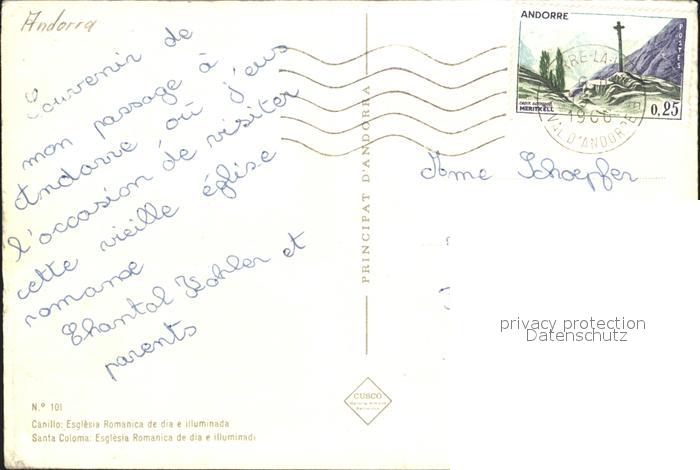 Andorra
Souvenir de
mon passage à
Andorre où j'eus
l'occasion de visiter
cette vieille église
romane
Chantal Kohler et
parents
N.º 101
Canillo: Esglèsia Romanica de dia e illuminada
Santa Coloma: Esglèsia Romanica de dia e illuminadi
PRINCIPAT D'ANDORRA
CUSCO
ANDORRE
POSTES
CROIX GOTHIQUE
MERITXELL
0,25
VAL D'ANDORRE
Mme Schoepfer
privacy protection
Datenschutz